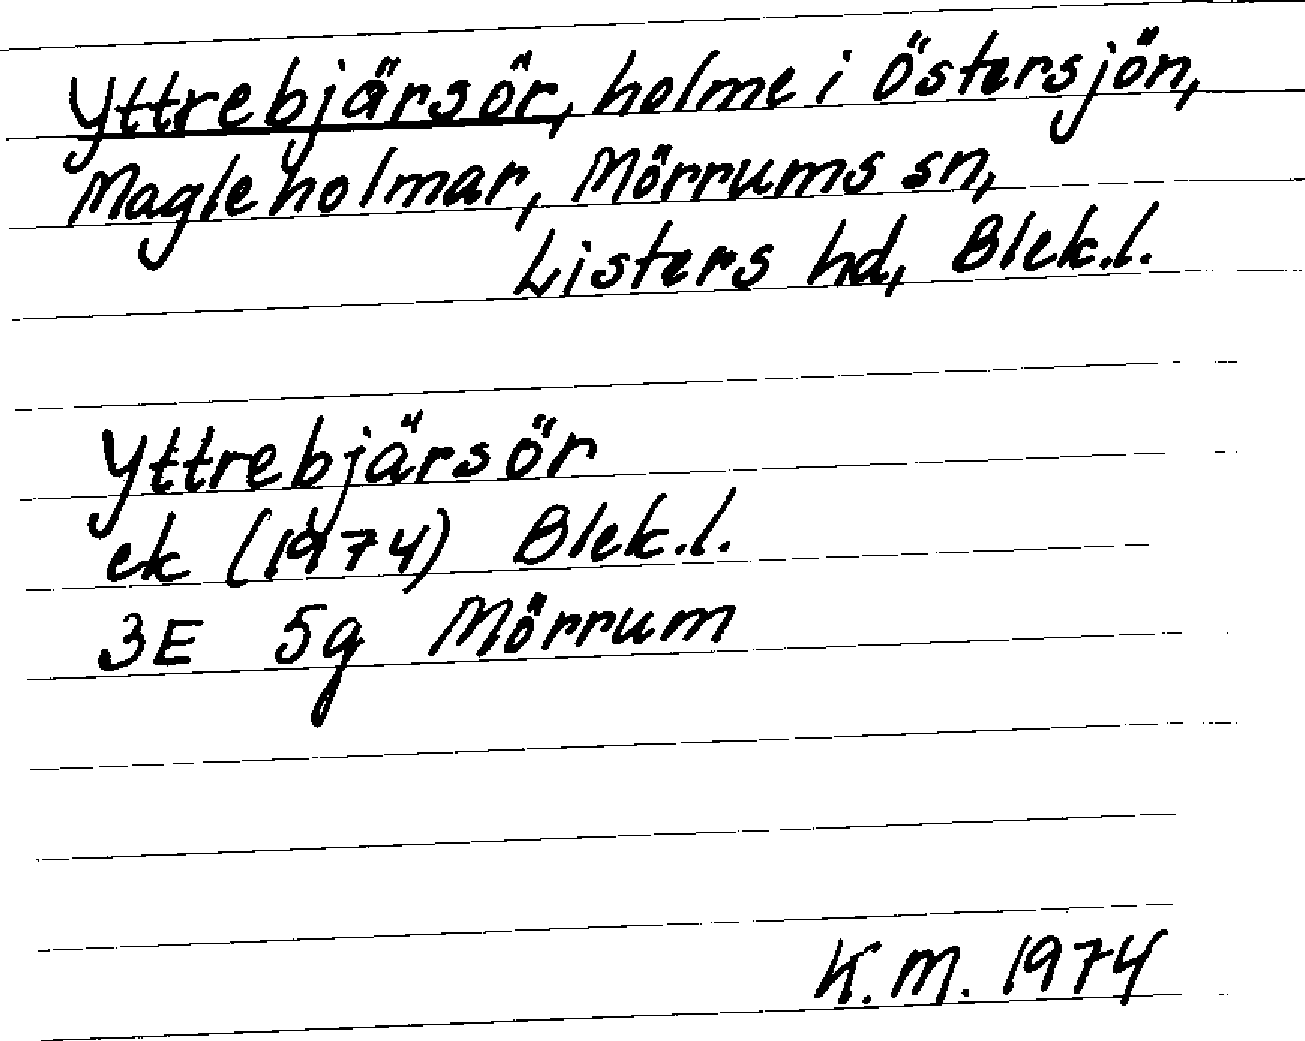 Yttrebjärsör, holme i Östersjön,
Magleholmar, Mörrums sn,
Listers hd, Blek.l.
Yttrebjärsör
ek (1974) Blek.l.
3E 5g Mörrum
K.M. 1974